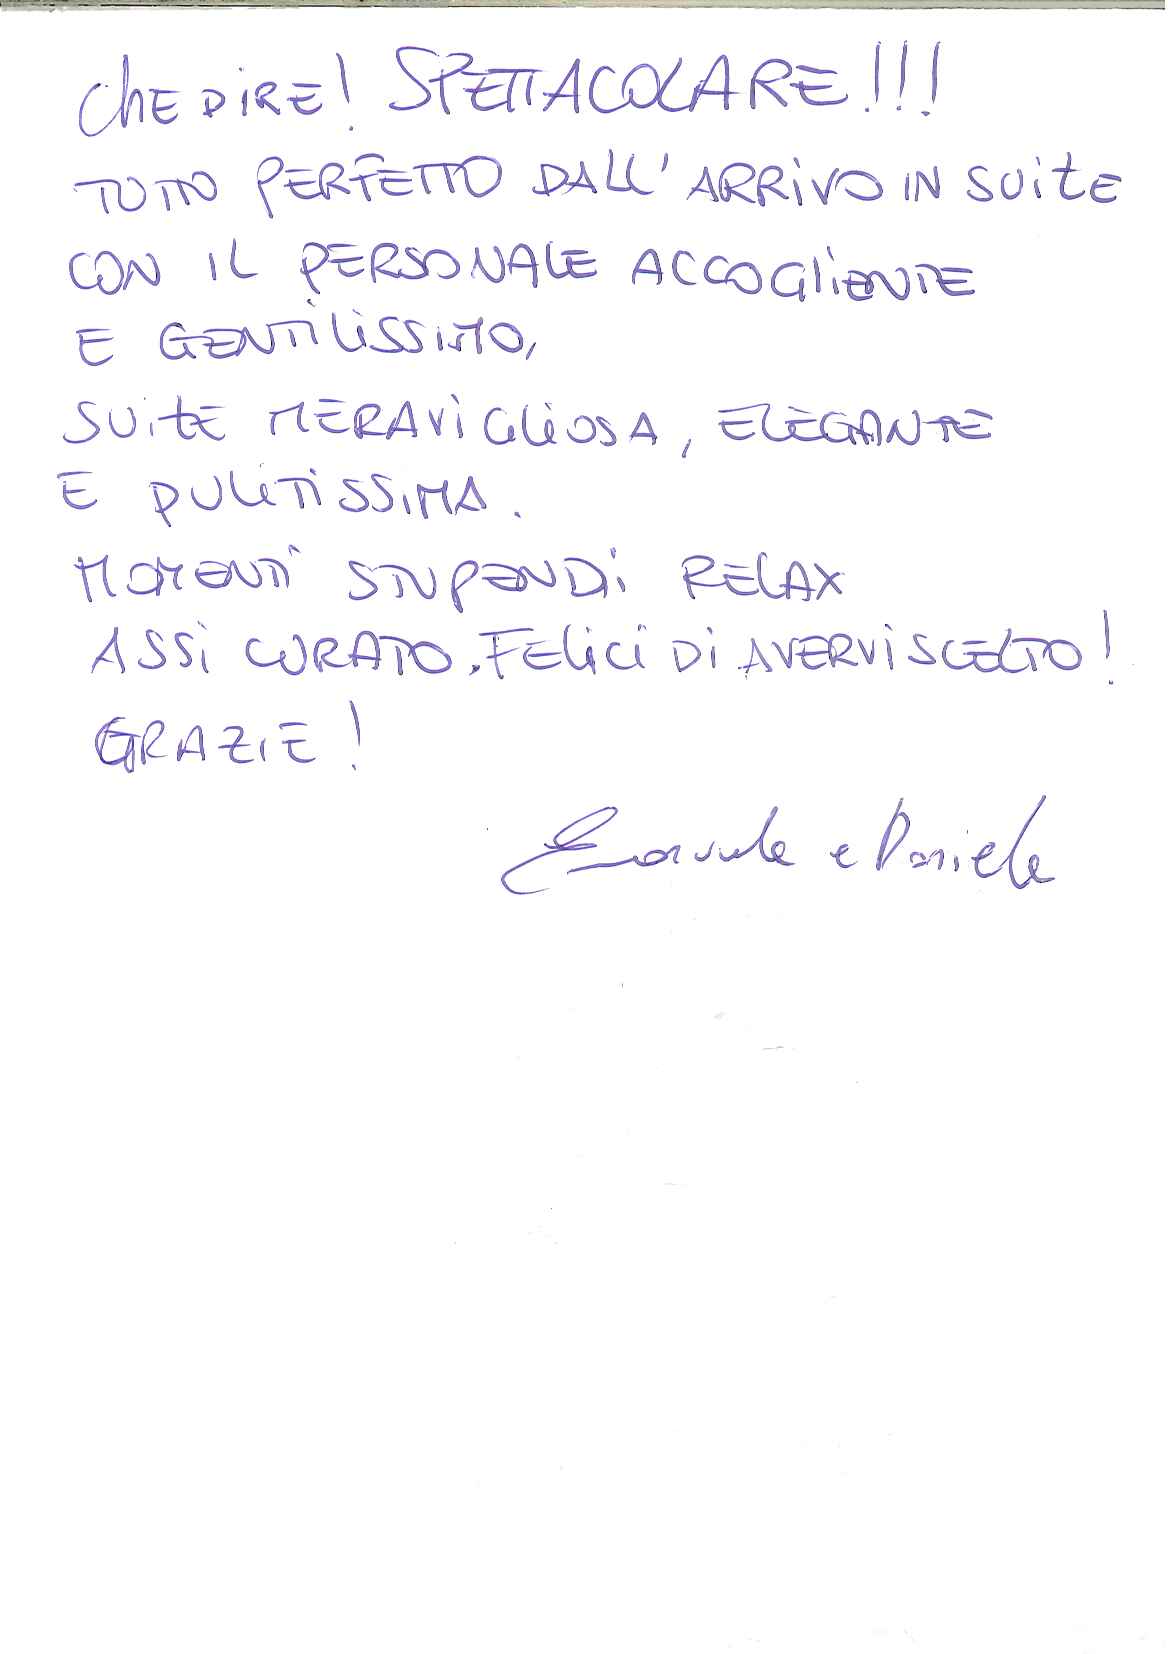 CHE DIRE! SPETTACOLARE!!!
TUTTO PERFETTO DALL'ARRIVO IN SUITE
CON IL PERSONALE ACCOGLIENTE
E GENTILISSIMO,
SUITE MERAVIGLIOSA, ELEGANTE
E PULITISSIMA.
MOMENTI STUPENDI RELAX
ASSICURATO. FELICI DI AVERVI SCELTO!
GRAZIE!
e Daniele